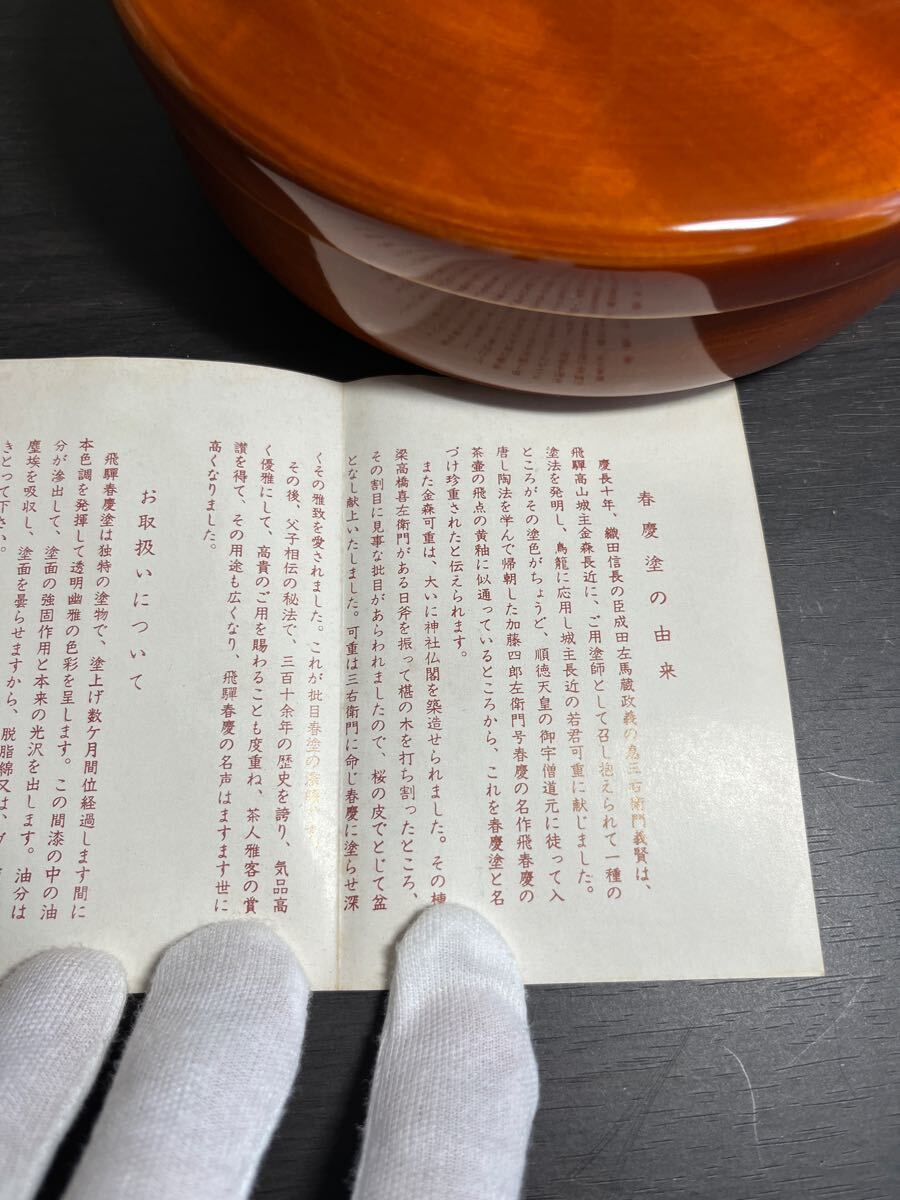 春慶塗の由来
慶長十年、織田信長の臣成田左馬蔵政義の息三右衛門義賢は、
飛驒高山城主金森長近に、ご用塗師として召し抱えられて一種の
塗法を発明し、鳥籠に応用し城主長近の若君可重に献じました。
ところがその塗色がちょうど、順徳天皇の御宇僧道元に徒って入
唐し陶法を学んで帰朝した加藤四郎左衛門号春慶の名作飛春慶の
茶壷の飛点の黄釉に似通っているところから、これを春慶塗と名
づけ珍重されたと伝えられます。
また金森可重は、大いに神社仏閣を築造せられました。その棟
梁高橋喜左衛門がある日斧を振って椹の木を打ち割ったところ、
その割目に見事な批目があらわれましたので、桜の皮でとじて盆
となし献上いたしました。可重は三右衛門に命じ春慶に塗らせ深
くその雅致を愛されました。これが批目春塗の
その後、父子相伝の秘法で、三百十余年の歴史を誇り、気品高
く優雅にして、高貴のご用を賜わることも度重ね、茶人雅客の賞
讃を得て、その用途も広くなり、飛驒春慶の名声はますます世に
高くなりました。
お取扱いについて
飛驒春慶塗は独特の塗物で、塗上げ数ケ月間位経過します間に
本色調を発揮して透明幽雅の色彩を呈します。この間漆の中の油
分が滲出して、塗面の強固作用と本来の光沢を出します。油分は
塵埃を吸収し、塗面を曇らせますから、脱脂綿又は、
きとって下さい。